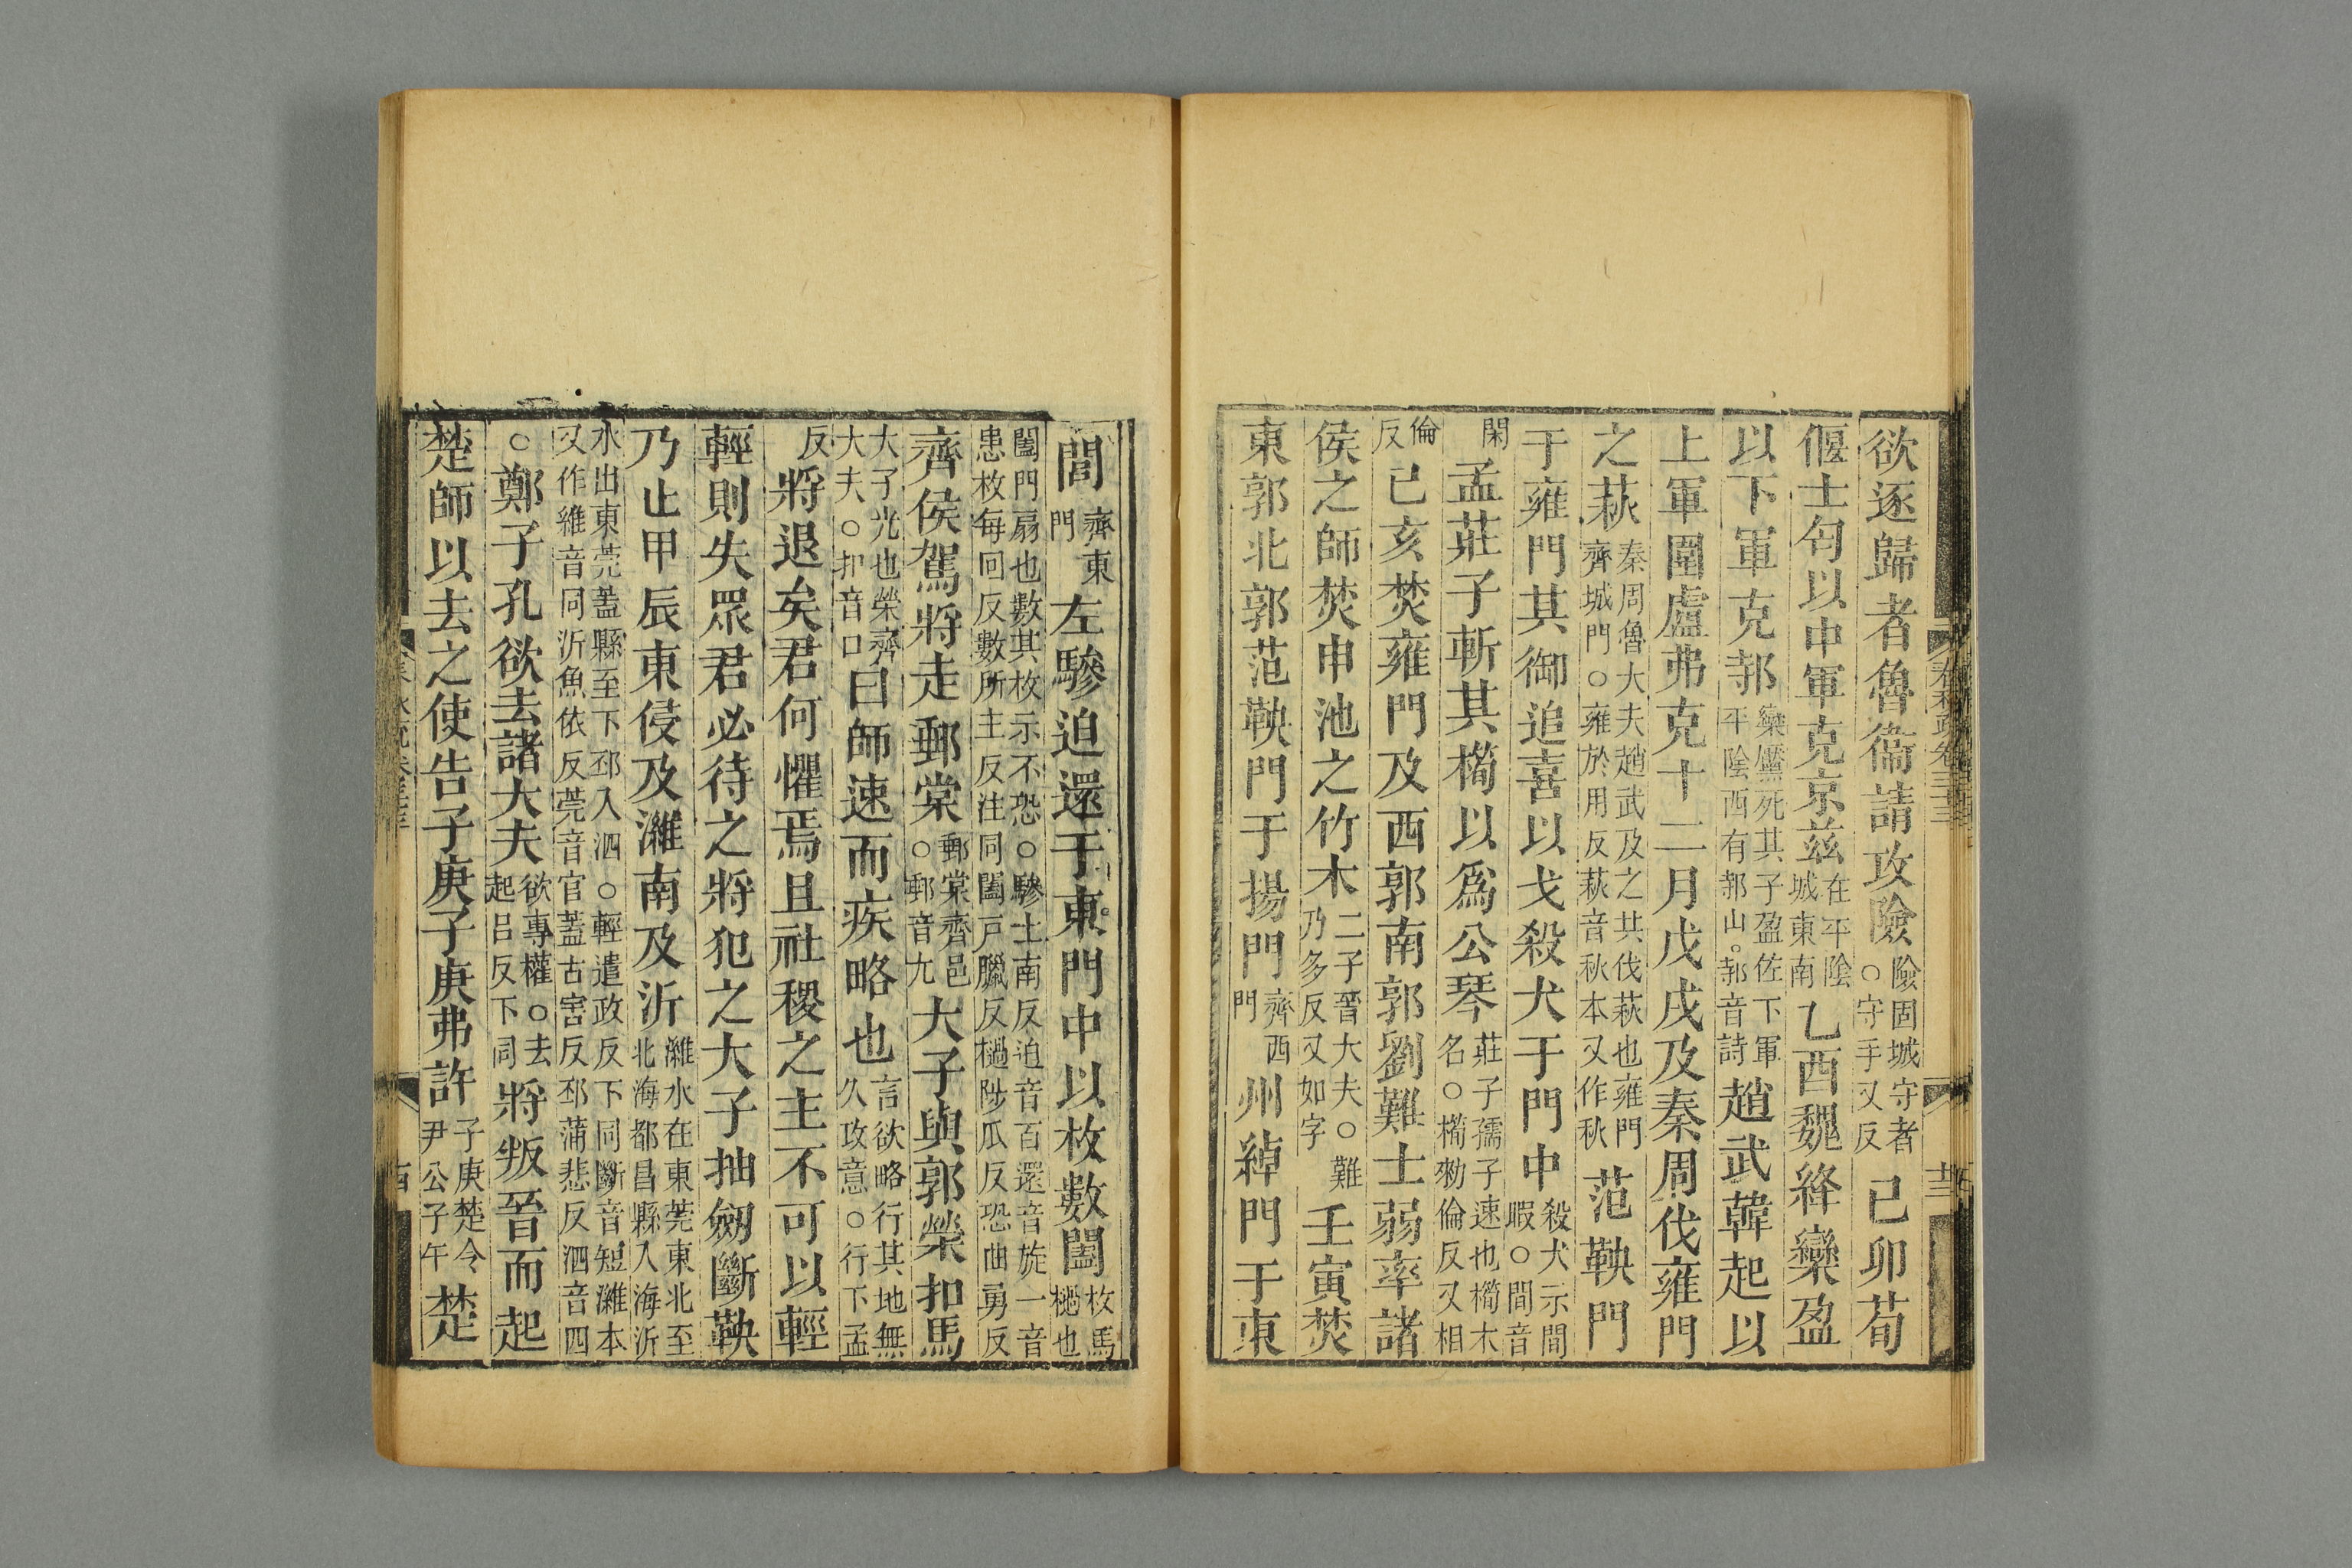 欲逐歸者魯衞請攻險險固城守者○守手又反己卯荀
偃士匄以中軍克京茲在平陰城東南乙酉魏絳欒盈
以下軍克邿欒黶死其子盈佐下軍平陰西有邿山○邿音詩趙武韓起以
上軍圍盧弗克十二月戊戌及秦周伐雍門
之萩秦周魯大夫趙武及之共伐萩也雍門齊城門○雍於用反萩音秋本又作秋范鞅門
于雍門其御追喜以戈殺犬于門中殺犬示間暇○間音
閑孟莊子斬其橁以爲公琴莊子孺子速也橁木名○橁勑倫反又相
倫反己亥焚雍門及西郭南郭劉難士弱率諸
侯之師焚申池之竹木二子晉大夫○難乃多反又如字壬寅焚
東郭北郭范鞅門于揚門齊西門州綽門于東
閭齊東門左驂迫還于東門中以枚數闔枚馬檛也
闔門扇也數其枚示不恐○驂七南反迫音百還音旋一音患枚每回反數所主反注同闔戶臘反檛陟瓜反恐曲勇反
齊侯駕將走郵棠郵棠齊邑○郵音尤大子與郭榮扣馬
大子光也榮齊大夫○扣音口曰師速而疾略也言欲略行其地無久攻意○行下孟
反將退矣君何懼焉且社稷之主不可以輕
輕則失眾君必待之將犯之大子抽劒斷鞅
乃止甲辰東侵及濰南及沂濰水在東莞東北至北海都昌縣入海沂
水出東莞蓋縣至下邳入泗○輕遣政反下同斷音短濰本又作維音同沂魚依反莞音官蓋古害反邳蒲悲反泗音四
○鄭子孔欲去諸大夫欲專權○去起呂反下同將叛晉而起
楚師以去之使告子庚子庚弗許子庚楚令尹公子午楚